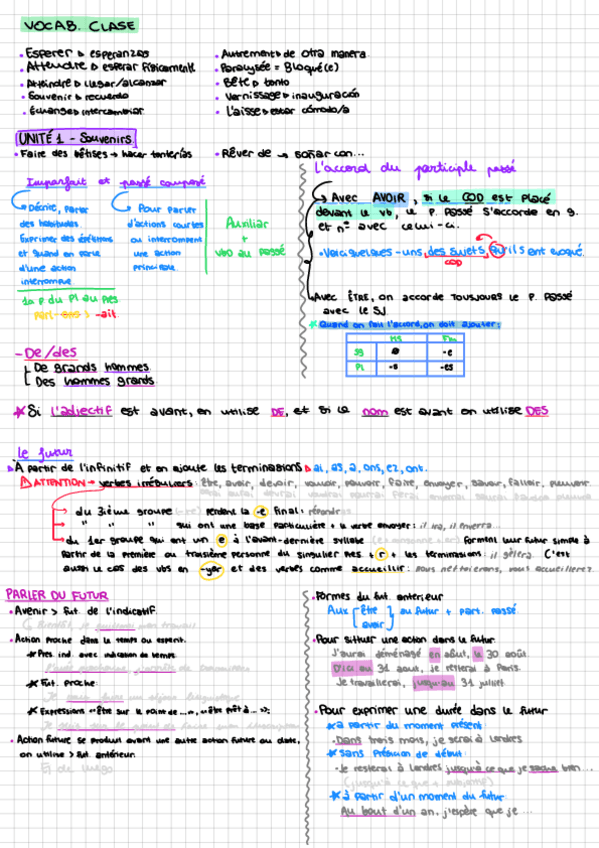 VOCAB. CLASE
• Esperer ▹ esperanzas
• Attendre ▹ esperar físicamente
• Atteindre ▹ llegar/alcanzar
• Souvenir ▹ recuerdo
• Échange ▹ intercambiar
• Autrement ▹ de otra manera
• Paralysée = Bloqué(e)
• Bête ▹ tonto
• Vernissage ▹ inauguración
• L'aisse ▹ estar cómodo/a
UNITÉ 1 - Souvenirs
• Faire des bêtises → hacer tonterías
• Rêver de → soñar con...
Imparfait et passé composé
Décrire, parler
des habitudes
Exprimer des
et quand on parle
d'une action
interrompue
Pour parler
d'actions courtes
ou interrompent
une action
principale
Auxiliar
+
vbo au passé
1a p du Pl au prés
-ait
L'accord du participle passé
→ Avec AVOIR, si le COD est placé
devant le vb, le p. passé s'accorde en g.
et nº avec celui-ci.
• Voici quelques-uns des sujets qu'ils ont évoqué.
COD
Avec ÊTRE, on accorde tousjours le p. passé
avec le SJ.
* Quand on fait l'accord, on doit ajouter:
MS Fm
Sg ø -e
Pl -s -es
- De/des
De grands hommes
Des hommes grands
* Si l'adjectif est avant, on utilise DE, et si le nom est avant on utilise DES
Le futur
▹ À partir de l'infinitif et on ajoute les terminaisons ▹ ai, as, a, ons, ez, ont.
⚠ ATTENTION → verbes irréguliers: être, avoir, devoir, vouloir, pouvoir, faire, envoyer, savoir, falloir, pleuvoir
→ du 3ième groupe perdent la -e final: répondre
→ " " " qui ont une base particulière + le verbe envoyer: il ira, il enverra...
→ du 1er groupe qui ont un e à l'avant-dernière syllabe forment leur futur simple à
partir de la première ou troisième personne du singulier prés + r + les terminaisons: il gèlera. C'est
aussi le cas des vbs en -yer et des verbes comme accueillir: nous nettoierons, vous accueillerez
PARLER DU FUTUR
• Avenir > fut. de l'indicatif.
• Action proche dans le temps ou espérit.
* Pres. ind. avec indication de temps.
* Fut. proche
* Expressions «être sur le point de...», «être prêt à...»;
• Action future se produit avant une autre action future ou date,
on utilise > fut. antérieur.
• Formes du fut. anterieur
Aux [être avoir] au futur + part. passé
• Pour sittuer une action dans le futur
J'aurai déménagé en août, le 30 août
D'ici au 31 aout, je resterai à Paris
Je travaillerai, jusqu'au 31 juillet
• Pour exprimer une durée dans le futur
* à partir du moment présent
• Dans trois mois, je serai à Londres
* sans présicion de début
• Je resterai à Londres jusqu'à ce que je sache bien...
* à partir d'un moment du futur
Au bout d'un an, j'espère que je ...